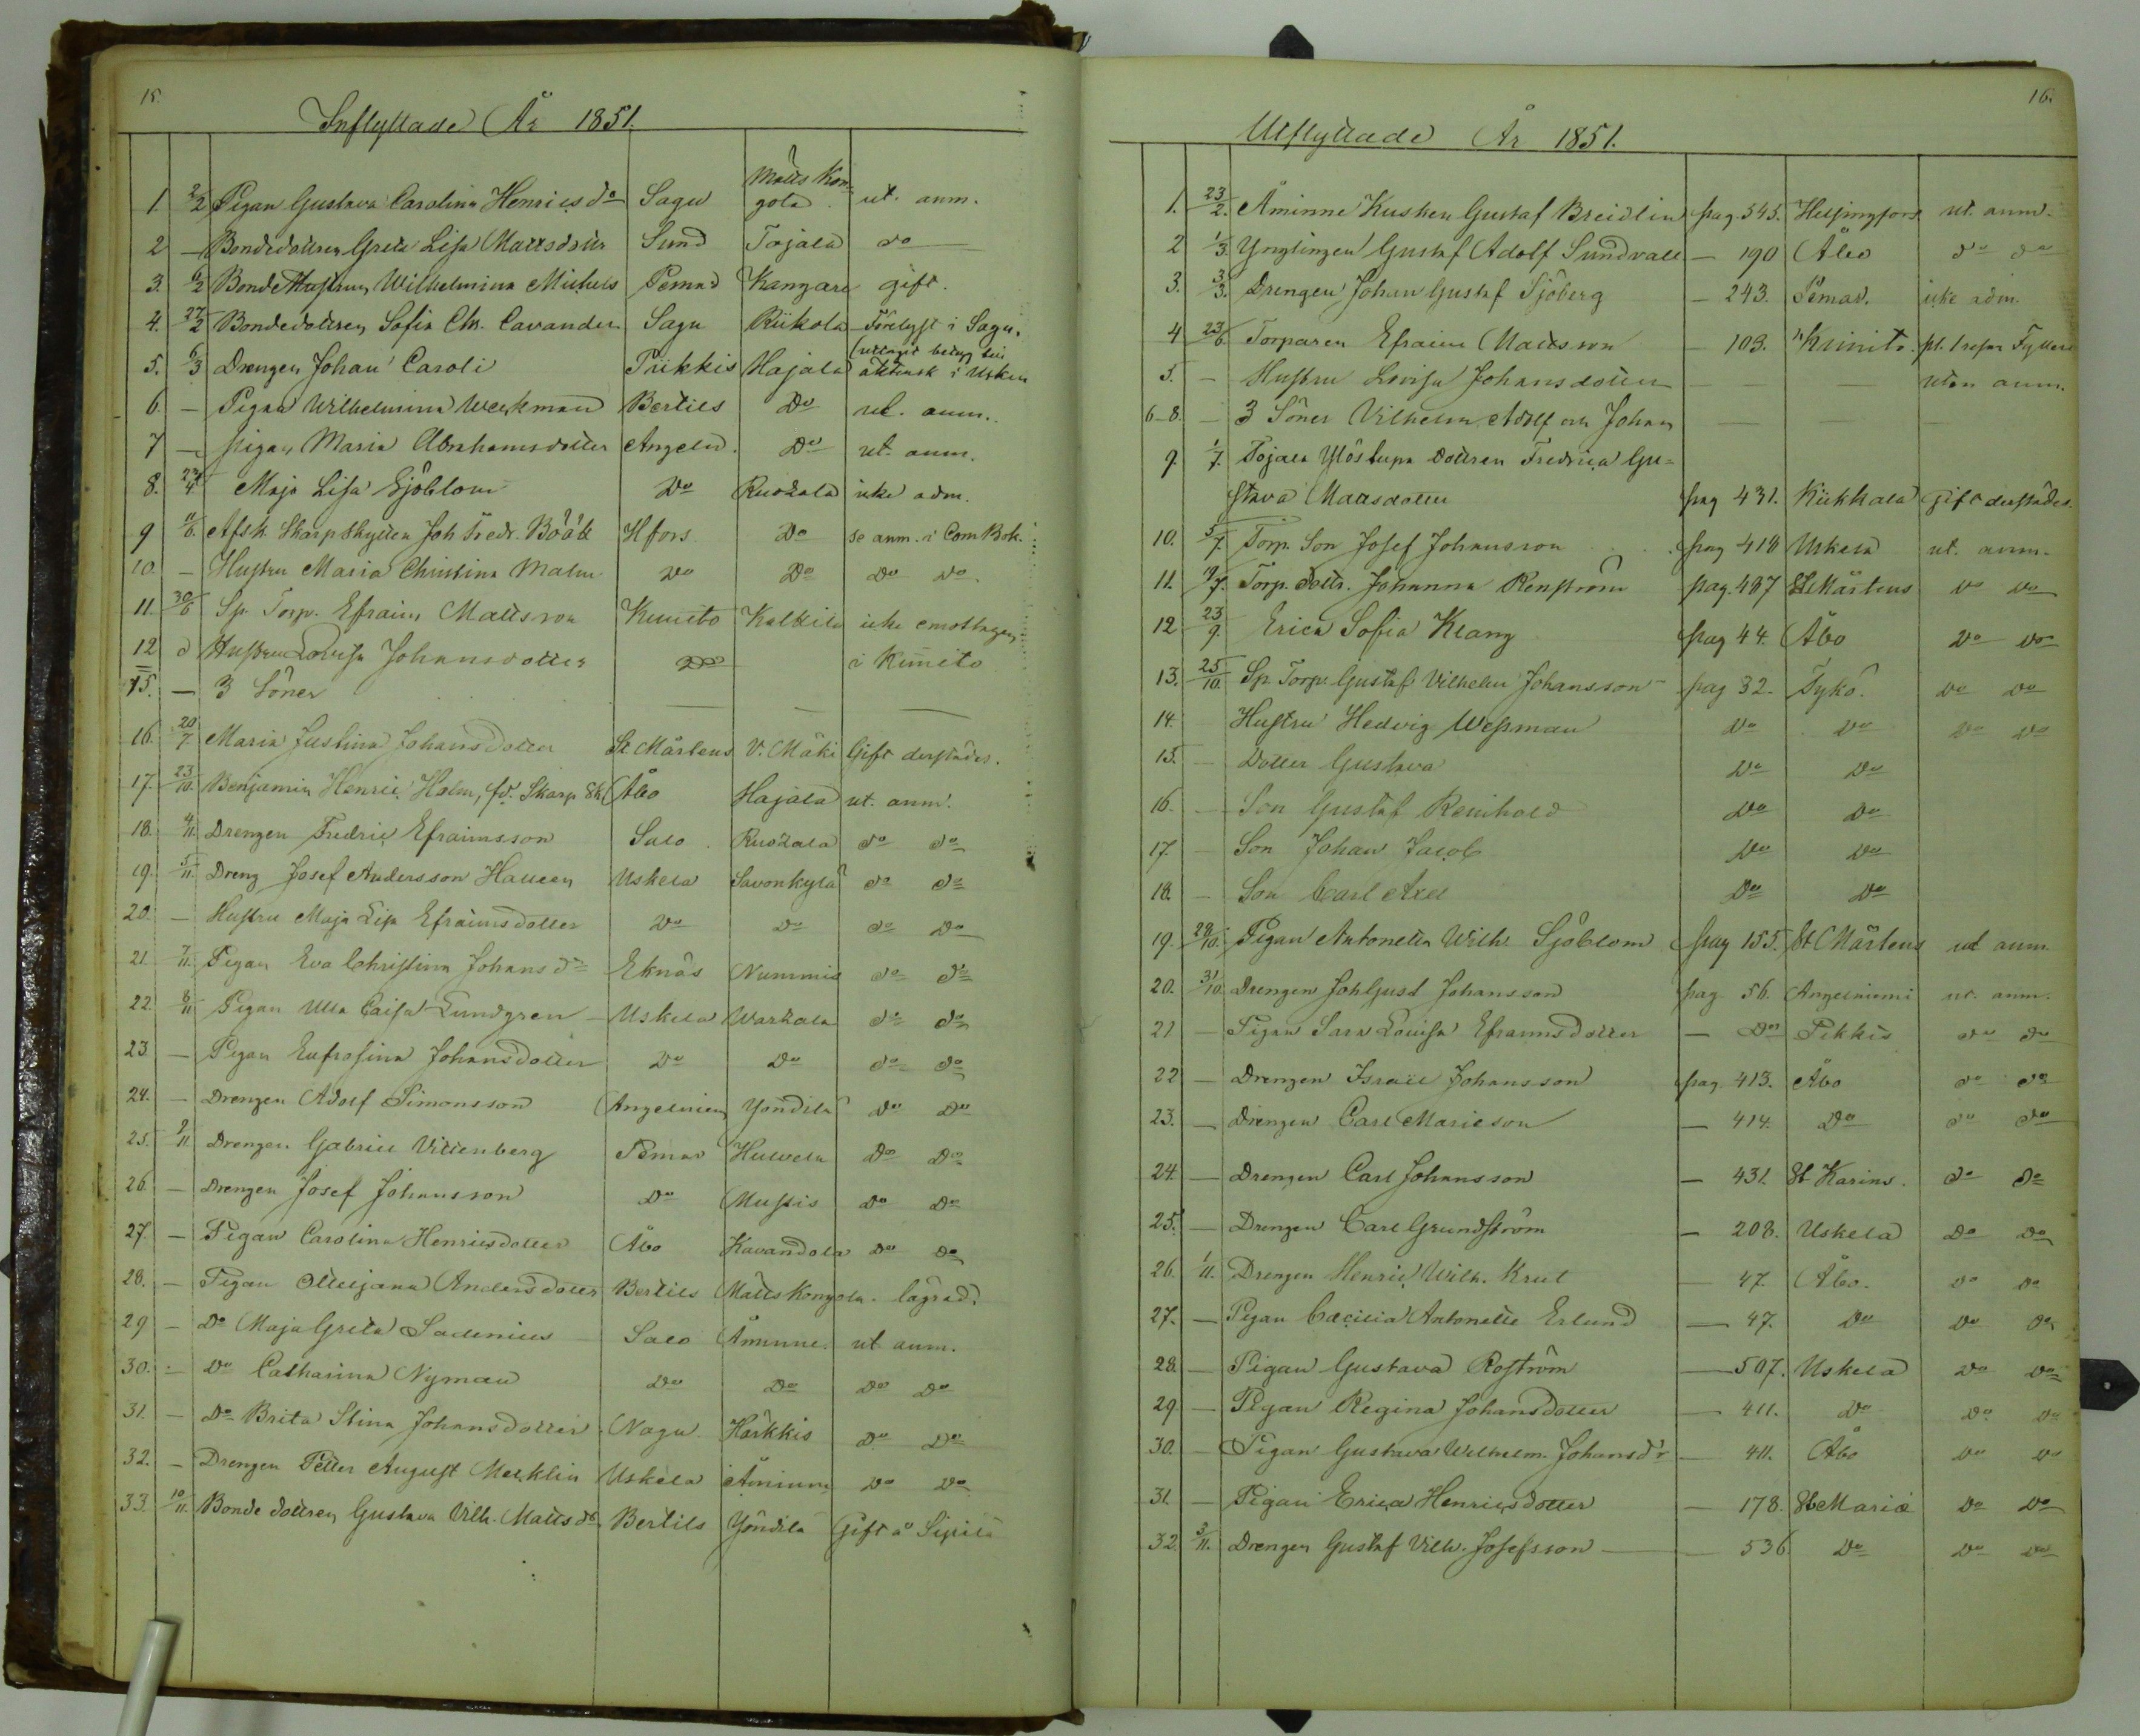 15.
Inflyttade År 1851.
1. 2/2 Pigan Gustava Carolina Henricsdr Sagu Mattskongola ut. anm.
2 — Bondedottren Greta Lisa Mattsdotter Sund Tojala do
3. 6/2 Bonde Hustrun Wilhelmina Michels Pemar Kangare gift.
4. 27/2 Bondedottren Sofia Ch. Cavander Sagu Riikola Förelyst i Sagu.
5. 6/3 Drengen Johan Caroli Piikkis Hajala
6. — Pigan Wilhelmina Weckman Bertils Do ut. anm.
7 — pigan Maria Abrahamsdotter Angeln. Do ut. anm.
8. 24/4 Maja Lisa Sjöblom Do Ruokala icke adm.
9 11/6. Afsk. Skarpskytten Joh Fredr. Böök Hfors Do se anm. i Com Bok.
10. — Hustru Maria Christina Malm Do Do Do Do
11. 30/6 Sp. Torp. Efraim Mattsson Kimito Kalkila icke emottagen
12 d Hustrun Lovisa Johansdotter Do i Kimito
15. — 3 Söner — — —
16. 20/7 Maria Justina Johansdotter St Mårtens V. Mäki Gift derstädes.
17. 23/10. Benjamin Henric Holm, fd. Skarp Sk Åbo Hajala ut. anm.
18. 4/11 Drengen Fredric Efraimsson Salo Ruokala do do
19. 5/11 Dreng Josef Andersson Halleen Uskela Savonkylä do do
20. — Hustru Maja Lisa Efraimsdotter Do Do do Do
21. 7/11. Pigan Eva Christina Johansdr Eknäs Nummis do do
22. 8/11 Pigan Ulla Caisa Lundgren — Uskela Warkala do do
23. — Pigan Eufrosina Johansdotter Do Do do do
24. — Drengen Adolf Simonsson Angelniemi Yöndilä Do Do
25. 9/11 Drengen Gabriel Vittenberg Pemar Hulvela Do Do
26. — Drengen Josef Johansson Do Mustis Do Do
27. — Pigan Carolina Henricsdotter Åbo Kavandola Do Do
28. — Pigan Ottiljana Andersdotter Bertils Mattskongola
29 — Do Maja Greta Sadenius Salo Åminne ut anm.
30. — Do Catharina Nyman Do Do Do Do
31. — Do Brita Stina Johansdotter Nagu Härkkis Do Do
32. — Drengen Petter August Mecklin Uskela Åminne Do Do
33. 10/11. Bonde dottren Gustava Vilh. Mattsdr Bertils Yöndilä Gift å Sipilä
16.
Utflyttade År 1851.
1. 23/2. Åminne Kusken Gustaf Breidlin pag. 545. Helsingfors ut. anm.
2 1/3. Ynglingen Gustaf Adolf Sundvall — 190 Åbo do do
3. 3/3. Drengen Johan Gustaf Sjöberg — 243. Pemar. icke adm.
4 23/6. Torparen Efraim Mattsson — 103. Kimito.
5. — Hustru Lovisa Johansdotter — — utan anm.
6–8. — 3 Söner Vilhelm, Adolf och Johan — — —
9. 1/7. Tojala Ylöstupa dottren Fredrica Gu=
stava Mattsdotter pag 431. Kiikkala Gift derstädes.
10. 5/7. Torp. Son Josef Johansson pag 418 Uskela ut. anm.
11. 19/7. Torp. dottr. Johanna Renström pag. 487 St Mårtens Do Do
12 23/9. Erica Sofia Klang pag 44. Åbo Do Do
13. 25/10. Sp. Torp. Gustaf Vilhelm Johansson pag 32. Tykö. Do Do
14. Hustru Hedvig Wesman Do Do Do Do
15. — Dotter Gustava Do Do
16. — Son Gustaf Reinhold Do Do
17. — Son Johan Jacob Do Do
18. — Son Carl Axel Do Do
19. 28/10. Pigan Antonetta Wilh. Sjöblom pag 155. St Mårtens ut anm.
20. 31/10. Drengen Joh Gust Johansson pag 56. Angelniemi ut. anm.
21 — Pigan Sara Lovisa Efraimsdotter — Do Pikkis do do
22 — Drengen Israel Johansson pag. 413. Åbo do do
23. — Drengen Carl Marieson — 414. Do do do
24. — Drengen Carl Johansson — 431. St Karins. do do
25. — Drengen Carl Grundström — 208. Uskela Do Do
26. 1/11. Drengen Henric Wilh. Krut — 47. Åbo. Do Do
27. — Pigan Cæcilia Antonette Erlund — 47. Do Do Do
28. — Pigan Gustava Roström — 507. Uskela Do Do
29. — Pigan Regina Johansdotter — 411. Do Do Do
30. — Pigan Gustava Wilhelm. Johansdr — 411. Åbo Do Do
31. — Pigan Erica Henricsdotter — 178. St Mariæ Do Do
32. 3/11. Drengen Gustaf Vilh. Josefsson — 536 Do Do Do